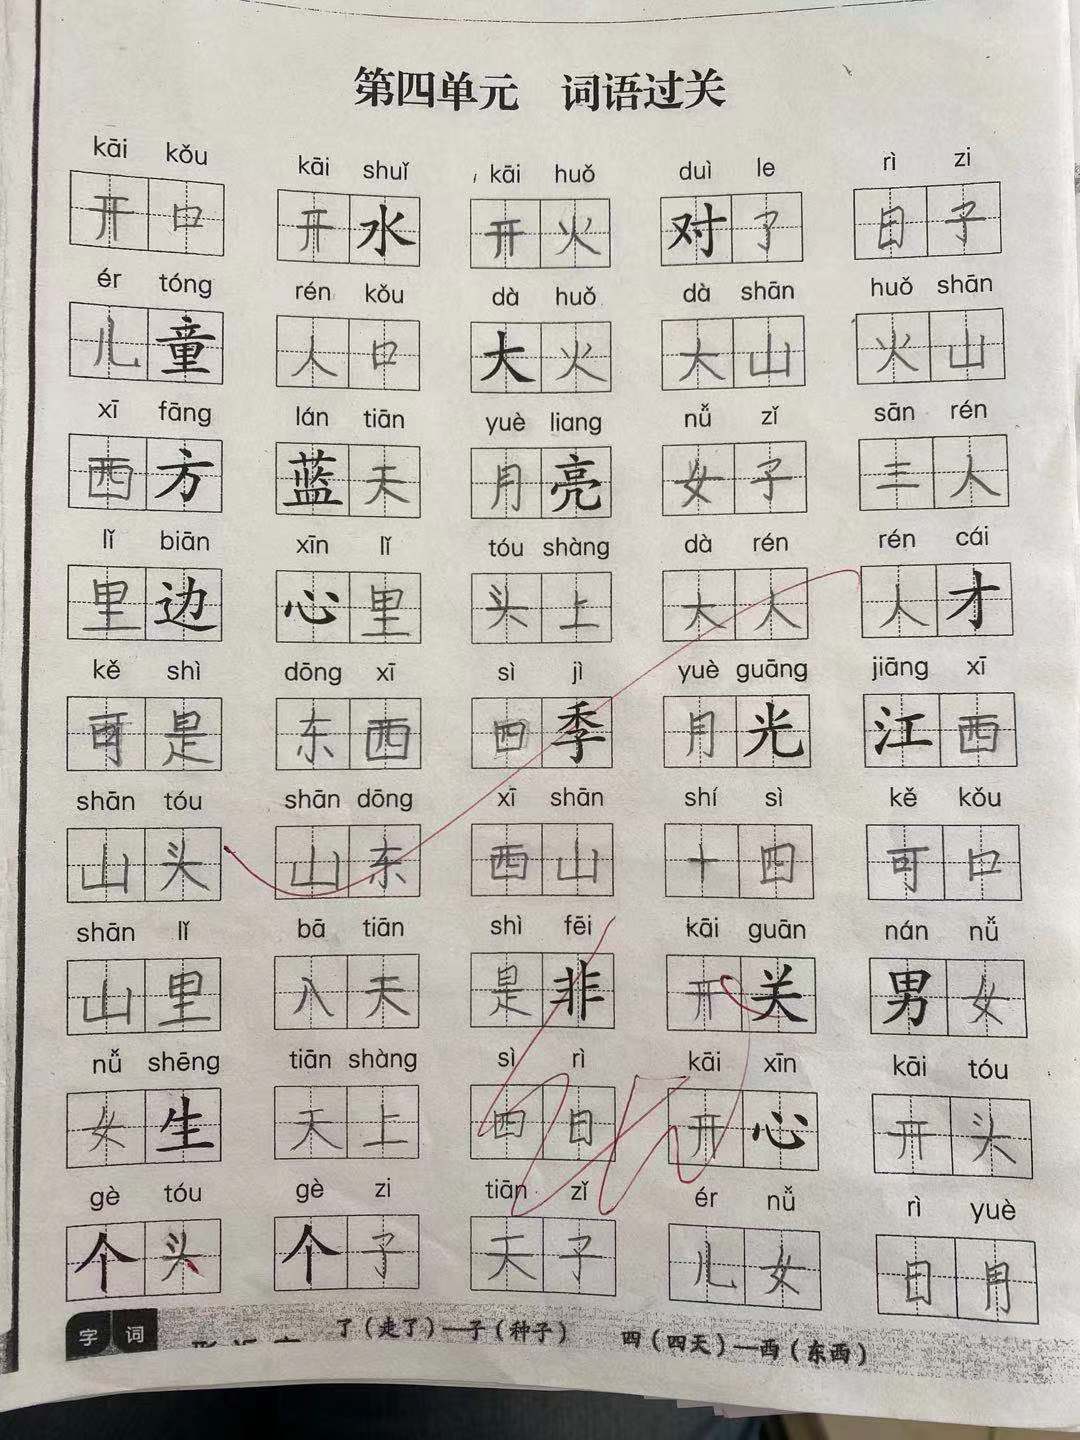 第四单元 词语过关
kāi kǒu kāi shuǐ kāi huǒ duì le rì zi
开口 开水 开火 对了 日子
ér tóng rén kǒu dà huǒ dà shān huǒ shān
儿童 人口 大火 大山 火山
xī fāng lán tiān yuè liang nǚ zǐ sān rén
西方 蓝天 月亮 女子 三人
lǐ biān xīn lǐ tóu shàng dà rén rén cái
里边 心里 头上 大人 人才
kě shì dōng xī sì jì yuè guāng jiāng xī
可是 东西 四季 月光 江西
shān tóu shān dōng xī shān shí sì kě kǒu
山头 山东 西山 十四 可口
shān lǐ bā tiān shì fēi kāi guān nán nǚ
山里 八天 是非 开关 男女
nǚ shēng tiān shàng sì rì kāi xīn kāi tóu
女生 天上 四日 开心 开头
gè tóu gè zi tiān zǐ ér nǚ rì yuè
个头 个子 天子 儿女 日月
字词
了（走了）—子（种子） 四（四天）—西（东西）